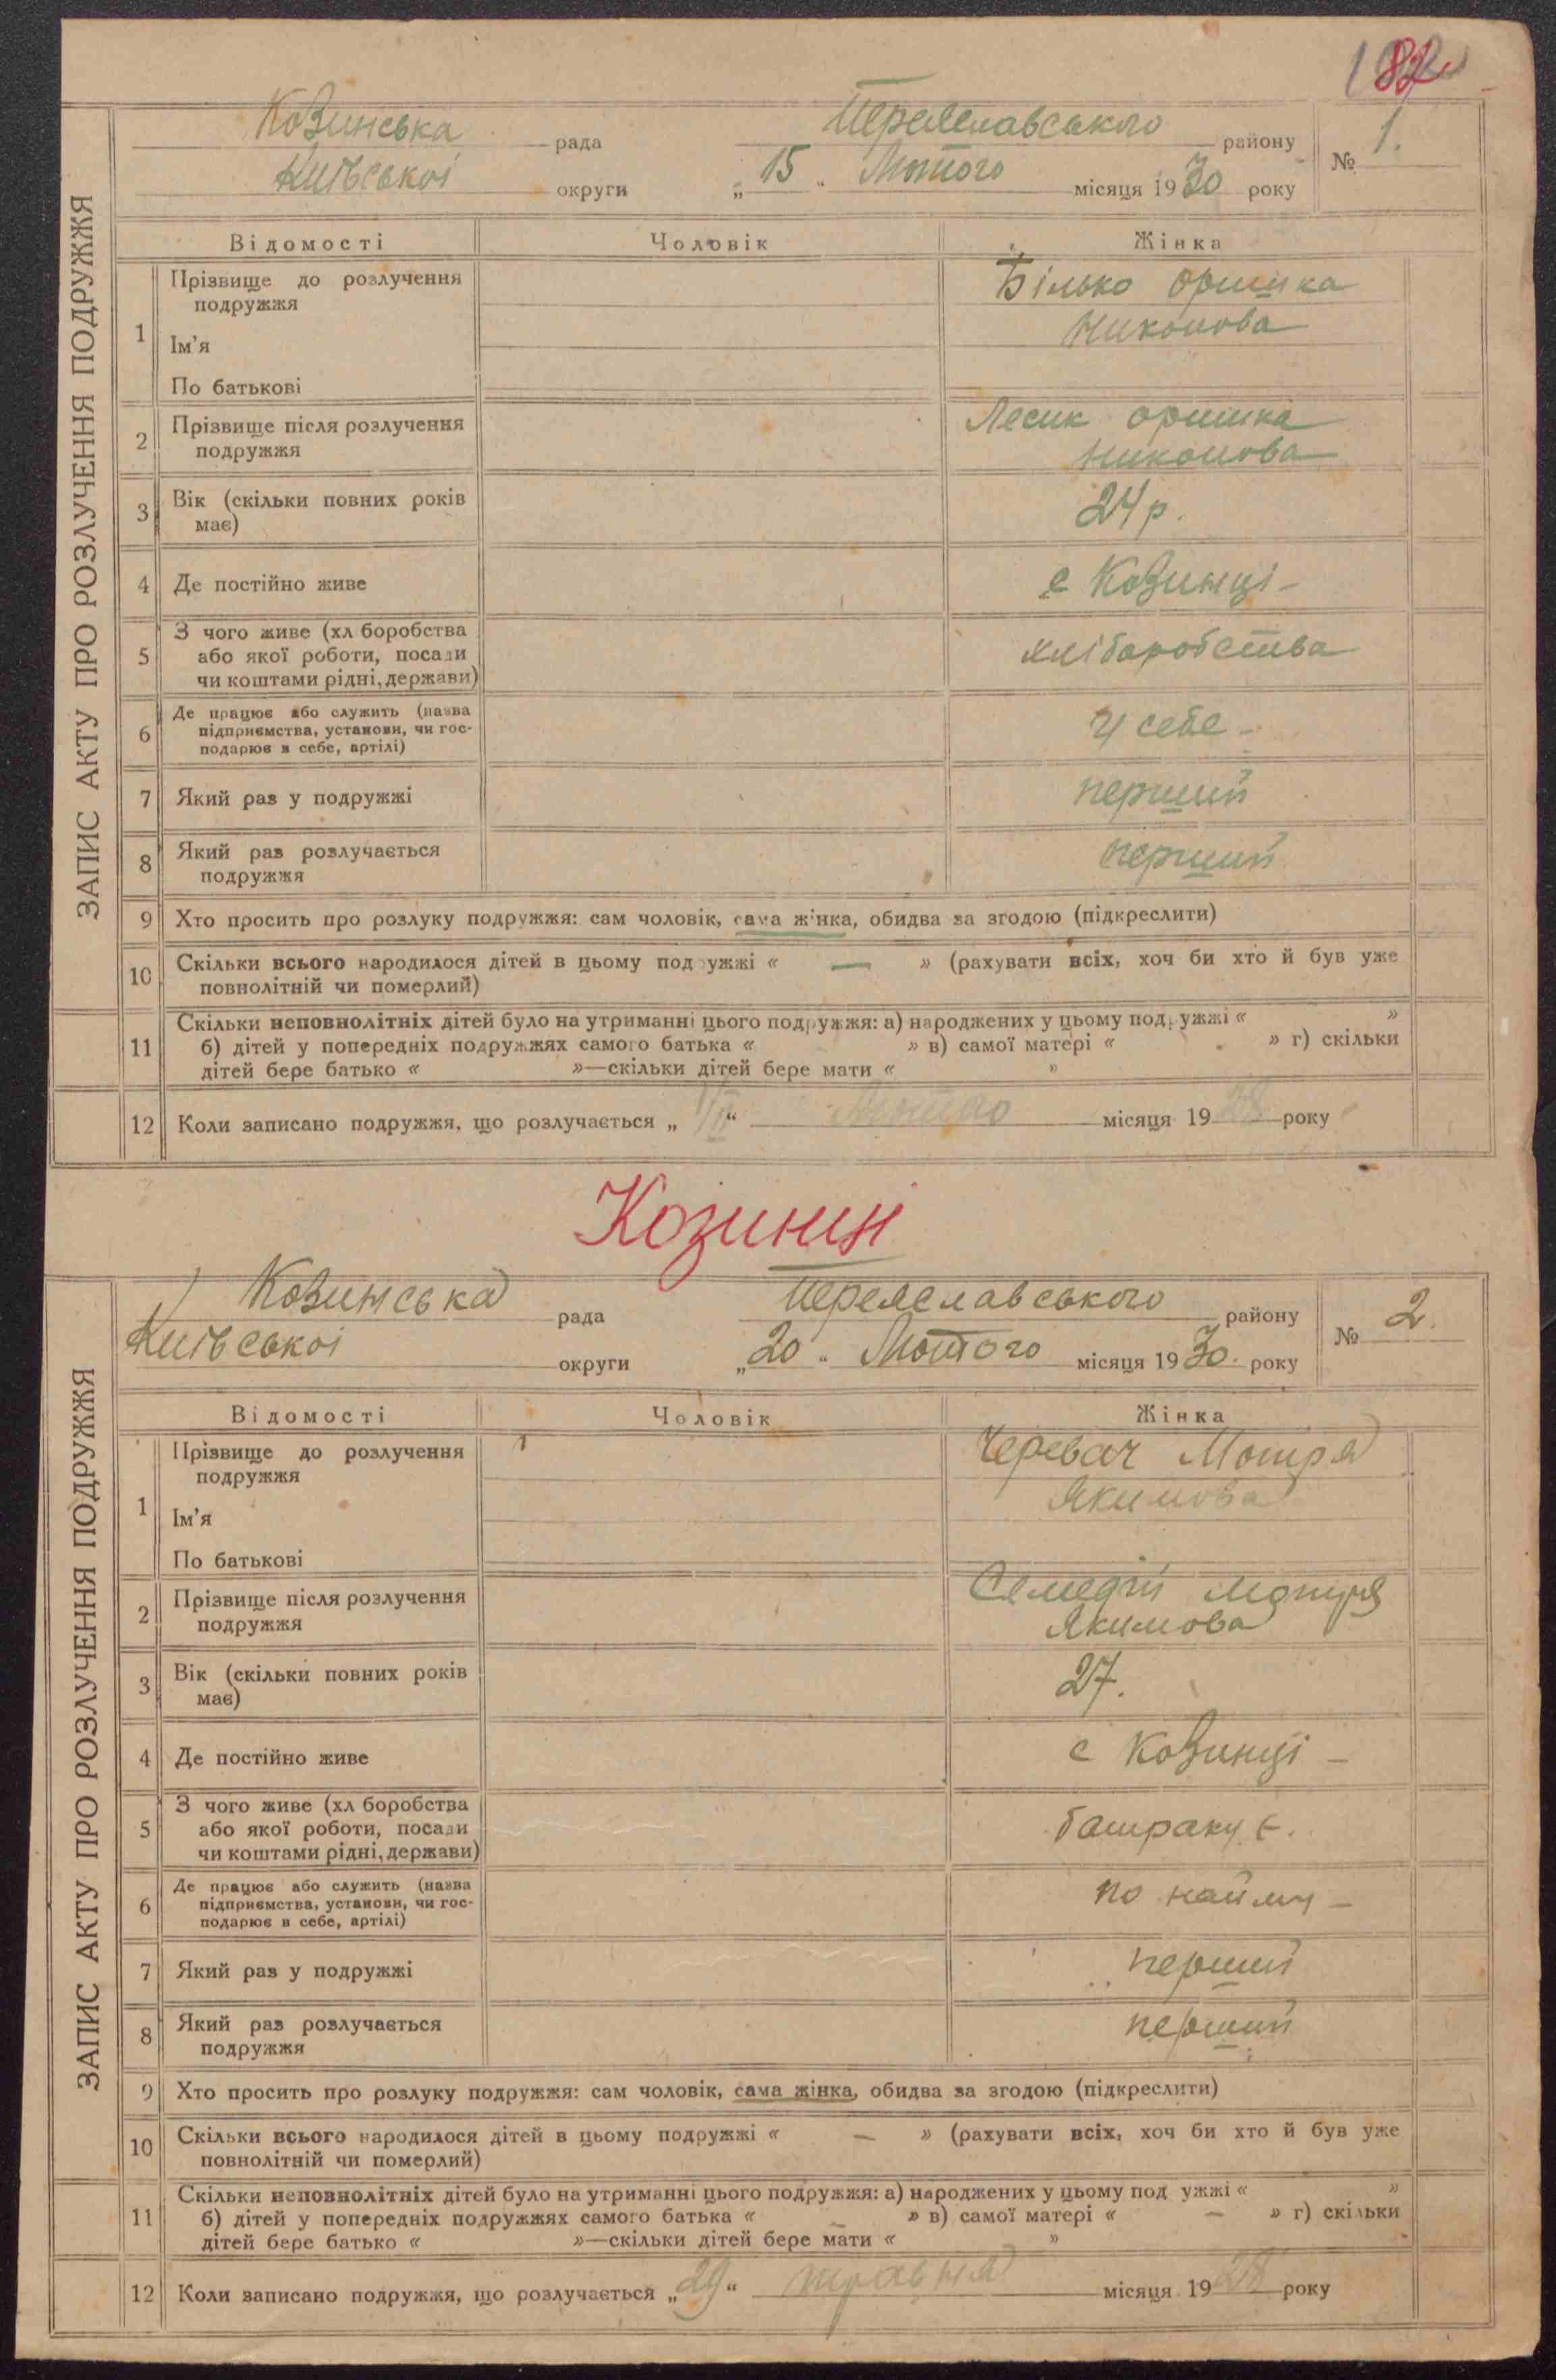 82
Козинська рада Переяславського району № 1.
Київської округи „15“ Лютого місяця 1930 року
ЗАПИС АКТУ ПРО РОЗЛУЧЕННЯ ПОДРУЖЖЯ
Відомості Чоловік Жінка
1 Прізвище до розлучення Білько Оришка
подружжя Никонова
Ім'я
По батькові
2 Прізвище після розлучення Лесик Оришка
подружжя Никонова
3 Вік (скільки повних років 24 р.
має)
4 Де постійно живе с Козинці
5 З чого живе (хл боробства хліборобства
або якої роботи, посади
чи коштами рідні, держави)
6 Де працює або служить (назва у себе
підприємства, установи, чи гос-
подарює в себе, артілі)
7 Який раз у подружжі перший
8 Який раз розлучається перший
подружжя
9 Хто просить про розлуку подружжя: сам чоловік, сама жінка, обидва за згодою (підкреслити)
10 Скільки всього народилося дітей в цьому подружжі « — » (рахувати всіх, хоч би хто й був уже
повнолітній чи померлий)
11 Скільки неповнолітніх дітей було на утриманні цього подружжя: а) народжених у цьому подружжі « »
б) дітей у попередніх подружжях самого батька « » в) самої матері « » г) скільки
дітей бере батько « »—скільки дітей бере мати « »
12 Коли записано подружжя, що розлучається „ “ Лютого місяця 1928 року
Козинці
Козинська рада Переяславського району № 2.
Київської округи „20“ Лютого місяця 1930. року
ЗАПИС АКТУ ПРО РОЗЛУЧЕННЯ ПОДРУЖЖЯ
Відомості Чоловік Жінка
1 Прізвище до розлучення Черевач Мотря
подружжя Якимова
Ім'я
По батькові
2 Прізвище після розлучення Мотря
подружжя Якимова
3 Вік (скільки повних років 27.
має)
4 Де постійно живе с Козинці —
5 З чого живе (хл боробства батракує.
або якої роботи, посади
чи коштами рідні, держави)
6 Де працює або служить (назва по найму —
підприємства, установи, чи гос-
подарює в себе, артілі)
7 Який раз у подружжі перший
8 Який раз розлучається перший
подружжя
9 Хто просить про розлуку подружжя: сам чоловік, сама жінка, обидва за згодою (підкреслити)
10 Скільки всього народилося дітей в цьому подружжі « — » (рахувати всіх, хоч би хто й був уже
повнолітній чи померлий)
11 Скільки неповнолітніх дітей було на утриманні цього подружжя: а) народжених у цьому под ужжі « »
б) дітей у попередніх подружжях самого батька « — » в) самої матері « — » г) скільки
дітей бере батько « »—скільки дітей бере мати « »
12 Коли записано подружжя, що розлучається „29“ травня місяця 1928 року